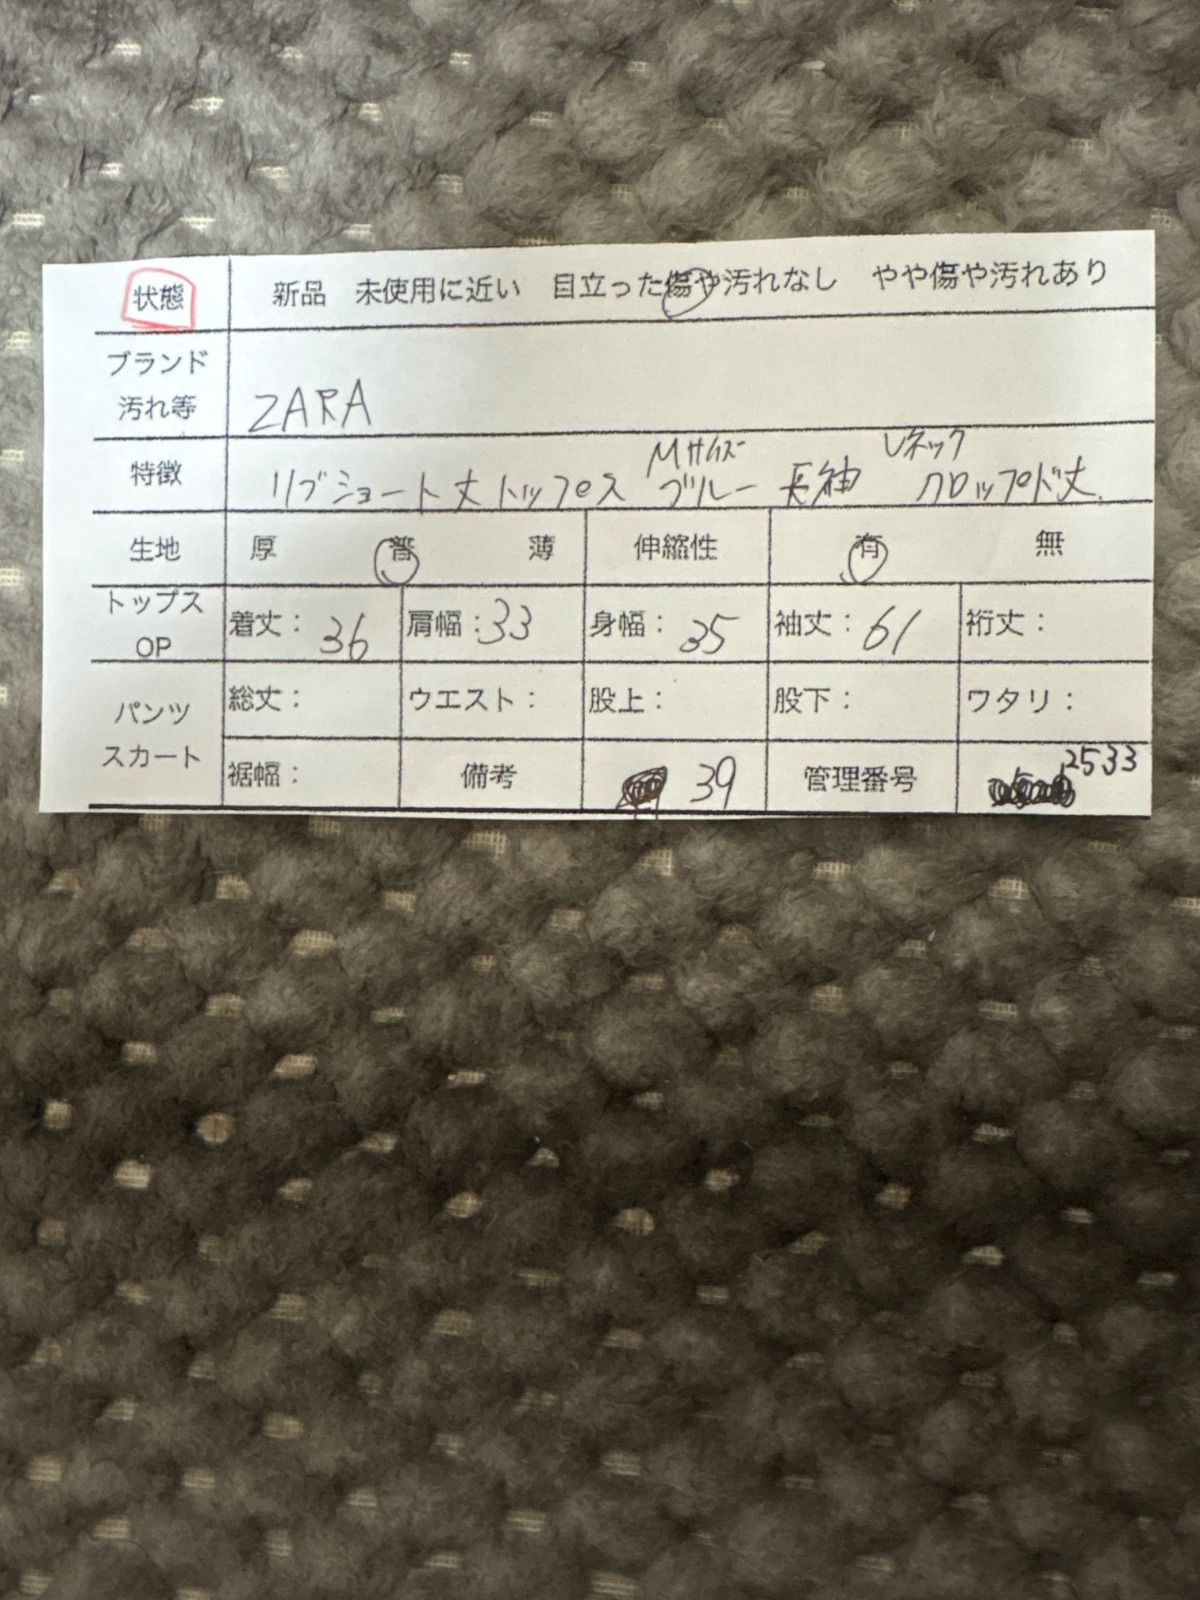 状態 新品 未使用に近い 目立った傷や汚れなし やや傷や汚れあり
ブランド
汚れ等 ZARA
Mサイズ Uネック
特徴 リブショート丈トップス ブルー 長袖 クロップド丈
生地 厚 普 薄 伸縮性 有 無
トップス
OP 着丈: 36 肩幅: 33 身幅: 35 袖丈: 61 裄丈:
パンツ
スカート 総丈: ウエスト: 股上: 股下: ワタリ:
裾幅: 備考 39 管理番号 2533